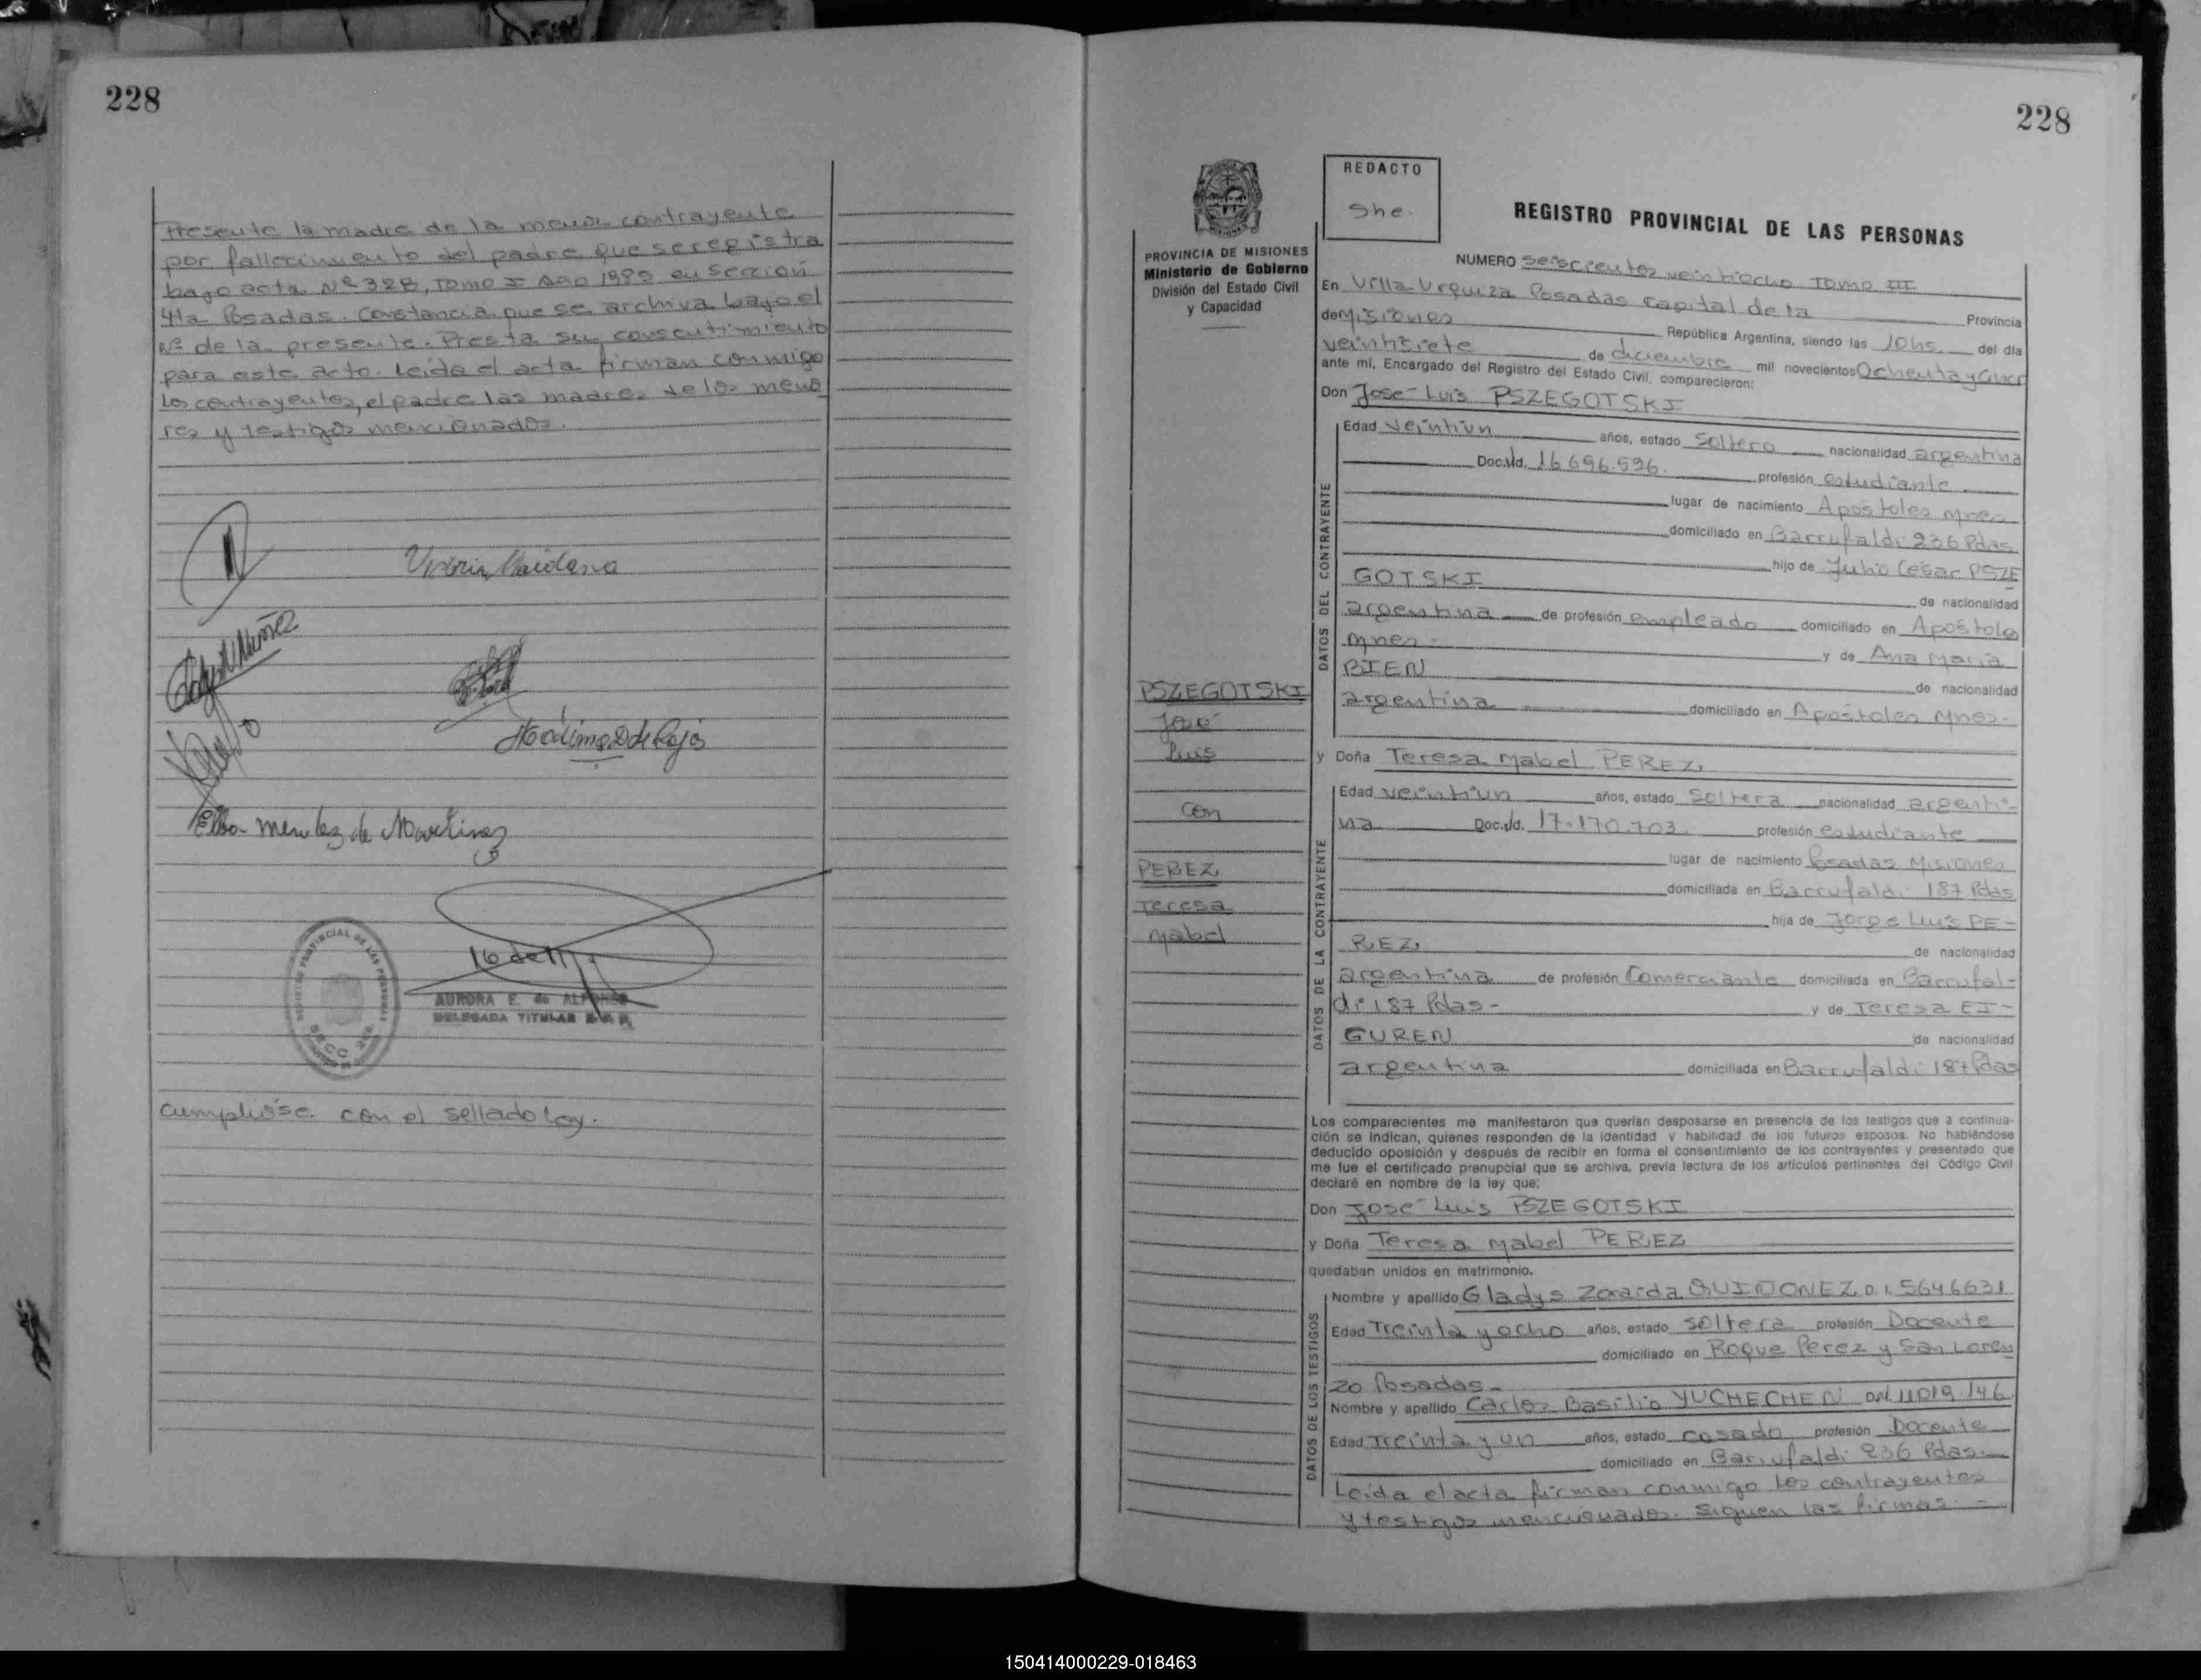 228
Presente la madre de la menor contrayente
por fallecimiento del padre que se registra
bajo acta Nº 328, Tomo I Año 1985 en Sección
4ta Posadas. Constancia que se archiva bajo el
Nº de la presente. Presta su consentimiento
para este acto. Leída el acta firman conmigo
los contrayentes, el padre las madres de los meno
res y testigos mencionados.
Maidana
Nuñez
de Rojas
Elba Mendez de Martinez
REGISTRO PROVINCIAL DE LAS PERSONAS
SECC.
AURORA E. de ALFONSO
DELEGADA TITULAR
Cumplióse con el sellado Ley.
228
PROVINCIA DE MISIONES
Ministerio de Gobierno
División del Estado Civil
y Capacidad
REDACTO
She.
REGISTRO PROVINCIAL DE LAS PERSONAS
NUMERO Seiscientos veintiocho Tomo III
En Villa Urquiza Posadas Capital de la Provincia
de Misiones República Argentina, siendo las 10hs. del día
veintisiete de diciembre mil novecientos Ochenta y
ante mí, Encargado del Registro del Estado Civil, comparecieron:
Don José Luis PSZEGOTSKI
DATOS DEL CONTRAYENTE
Edad veintiun años, estado Soltero nacionalidad argentina
Doc.Id. 16.696.596. profesión estudiante
lugar de nacimiento Apóstoles Mnes.
domiciliado en Barrufaldi 236 Pdas
hijo de Julio Cesar PSZE
GOTSKI de nacionalidad
argentina de profesión empleado domiciliado en Apóstoles
Mnes. y de Ana María
BIEN de nacionalidad
argentina domiciliado en Apóstoles Mnes.
PSZEGOTSKI
José
Luis
con
PEREZ
Teresa
Mabel
y Doña Teresa Mabel PEREZ
DATOS DE LA CONTRAYENTE
Edad veintiun años, estado Soltera nacionalidad argenti-
na Doc.Id. 17.170.703. profesión estudiante
lugar de nacimiento Posadas Misiones
domiciliada en Barrufaldi 187 Pdas
hija de Jorge Luis PE-
REZ de nacionalidad
argentina de profesión Comerciante domiciliada en Barrufal-
di 187 Pdas- y de Teresa EI-
GUREN de nacionalidad
argentina domiciliada en Barrufaldi 187 Pdas
Los comparecientes me manifestaron que querían desposarse en presencia de los testigos que a continua-
ción se indican, quienes responden de la identidad y habilidad de los futuros esposos. No habiéndose
deducido oposición y después de recibir en forma el consentimiento de los contrayentes y presentado que
me fue el certificado prenupcial que se archiva, previa lectura de los artículos pertinentes del Código Civil
declaré en nombre de la ley que:
Don José Luis PSZEGOTSKI
y Doña Teresa Mabel PEREZ
quedaban unidos en matrimonio.
DATOS DE LOS TESTIGOS
Nombre y apellido Gladys Zoraida QUIÑONEZ D.I. 5646631
Edad Treinta y ocho años, estado soltera profesión Docente
domiciliado en Roque Perez y San Loren
zo Posadas-
Nombre y apellido Carlos Basilio YUCHECHEN DNI 11019.146
Edad Treinta y un años, estado casado profesión Docente
domiciliado en Barrufaldi 236 Pdas.
Leída el acta firman conmigo los contrayentes
y testigos mencionados. Siguen las firmas. -
150414000229-018463